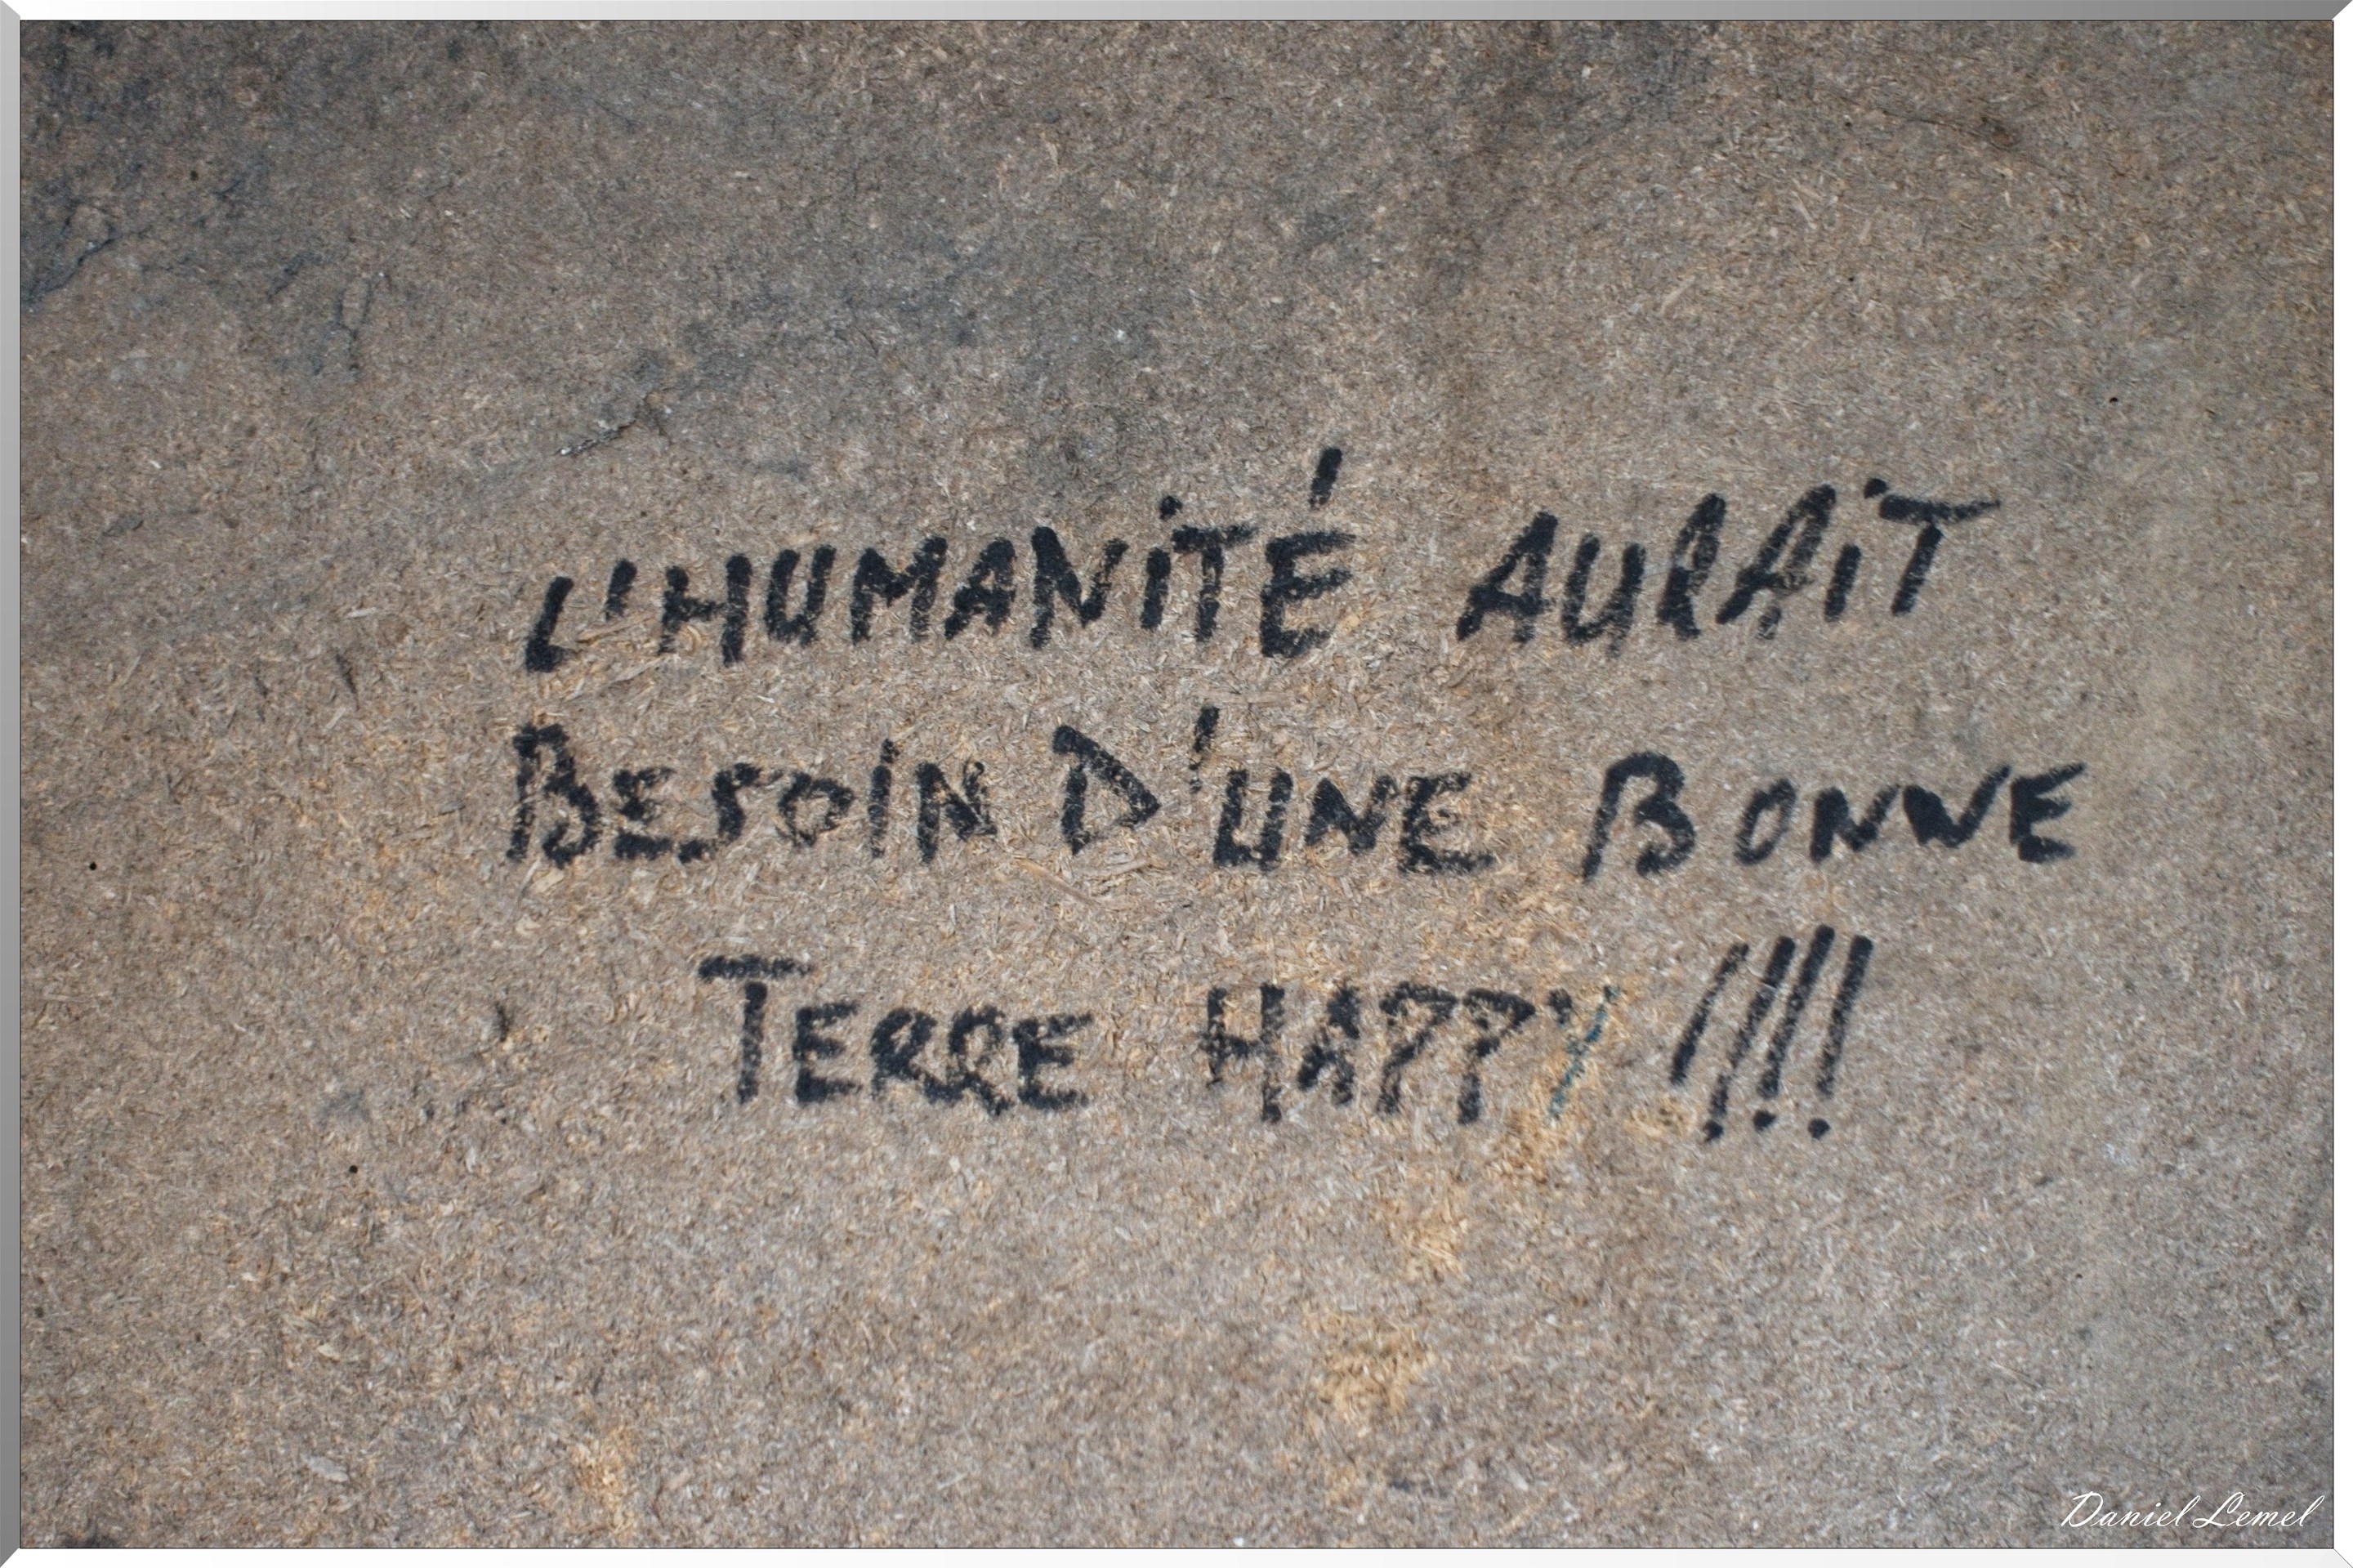 L'HUMANITÉ AURAIT
BESOIN D'UNE BONNE
TERRE HAPPY !!!
Daniel Lemel